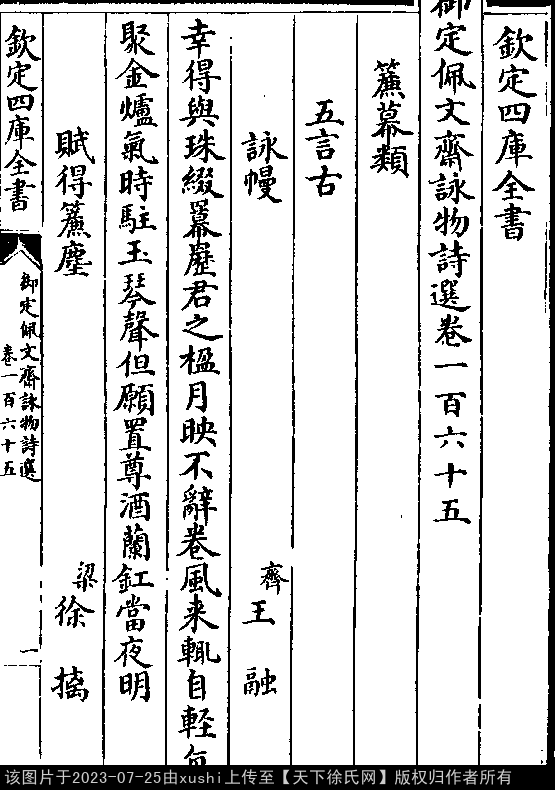 欽定四庫全書
御定佩文齋詠物詩選卷一百六十五
簾幕類
五言古
詠幔 齊王融
幸得與珠綴羃歷君之楹月映不辭卷風来輙自軽每
聚金爐氣時駐玉琴聲但願置尊酒蘭釭當夜明
賦得簾塵 梁徐摛
欽定四庫全書
御定佩文齋詠物詩選
卷一百六十五
一
该图片于2023-07-25由xushi上传至【天下徐氏网】版权归作者所有